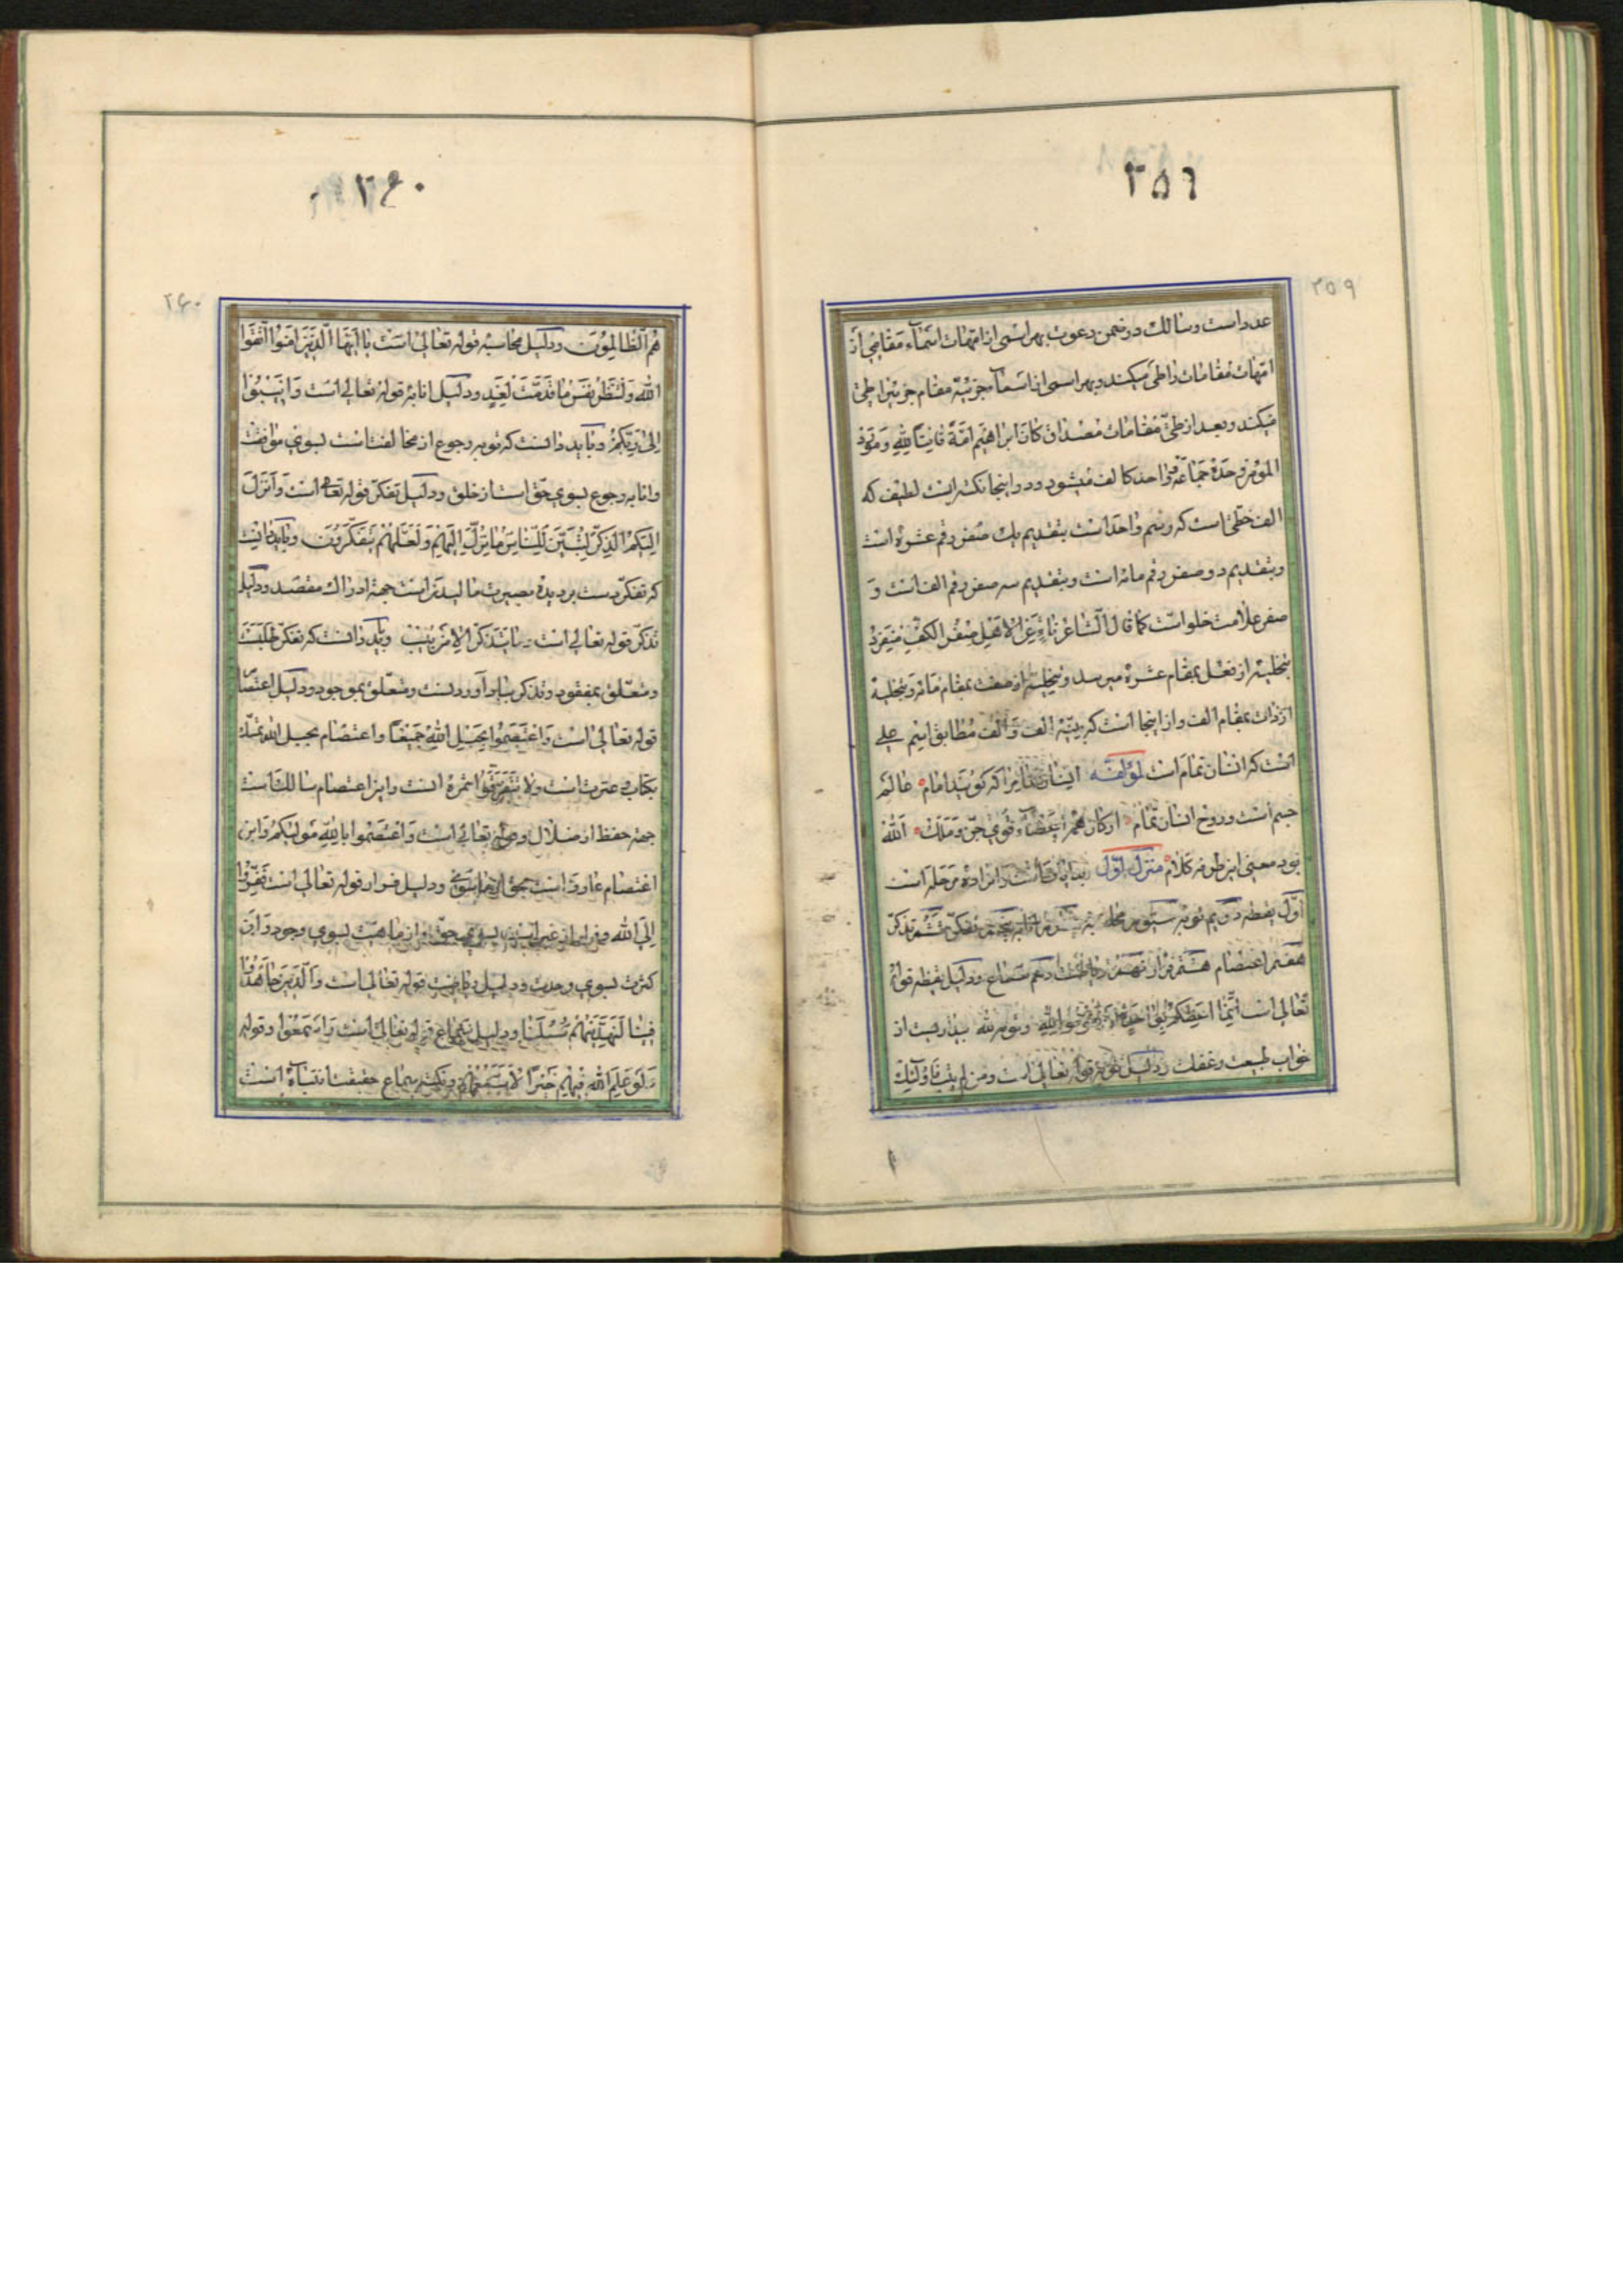 ۲۵۹
۲۵۹
عدد است و سالک در ضمن دعوت بهر اسمی از امّهات اسماء مقامی از
امّهات مقامات را طی میکند و بهر اسمی از اسماء جزئیّه مقام جزئی را طی
میکند و بعد از طیّ مقامات مصداق کان ابراهیم امّةً قانتاً لِلّهِ و مؤدّی
المؤمن وحدهُ جماعة و احد کالف میشود و در اینجا نکته ایست لطیف که
الف خطّی است که رسم واحد است بتقدیم یک صفر رقم عشره است
و بتقدیم دو صفر رقم مائه است و بتقدیم سه صفر رقم الف است و
صفر علامت خلو است کما قال الشاعر ناءٍ عن الاهل صفر الکفّ منفرد
بتخلیه از فعل بمقام عشره میرسد و بتخلیه از صفت بمقام مائه و بتخلیه
از ذات بمقام الف و از اینجا است که بیّنه الف و الف مطابق اسم علی
است که انسان تمام است لمؤلفه انسان تمام را که گویند امام عالم
جسم است و روح انسان تمام ارکان همه اعضا و قوی جنّ و ملک الله
بود معنی این طرفه کلام منزل اوّل بدایات است و آنرا ده مرحله است
اوّل یقظه دویم توبه سیّوم محاسبه چهارم انابه پنجم تفکّر ششم تذکّر
هفتم اعتصام هشتم فرار نهم ریاضت دهم سماع و دلیل یقظه قوله
تعالی است انّما اعظکم بواحدة ان تقوموا لِلّهِ و قومه لله بیداریست از
خواب طبیعت و غفلت و دلیل توبه قوله تعالی است و من لم یتب فاولئک
۲۶۰
۲۶۰
هُمُ الظّالِمُونَ و دلیل محاسبه قوله تعالی است یا اَیُّهَا الَّذینَ اٰمَنُوا اتَّقُوا
الله وَلْتَنْظُرْ نَفْسٌ مٰا قَدَّمَتْ لِغَدٍ و دلیل انابه قوله تعالی است وَ اَنیبُوا
اِلیٰ رَبِّکُمْ و باید دانست که توبه رجوع از مخالفت است بسوی موافقت
و انابه رجوع بسوی حقّ است از خلق و دلیل تفکّر قوله تعالی است وَ اَنْزَلَ
اِلَیْکُمُ الذِّکْرَ لِتُبَیِّنَ لِلنّاسِ مٰا نُزِّلَ اِلَیْهِمْ وَ لَعَلَّهُمْ یَتَفَکَّرُونَ و باید دانست
که تفکّر دست بردیدهٔ بصیرت مالیدن است جهة ادراک مقصد و دلیل
تذکّر قوله تعالی است و مٰا یَتَذَکَّرُ اِلّا مَنْ یُنیبُ و باید دانست که تفکّر طلبست
و متعلّق بمفقود و تذکر بیاد آوردنست و متعلّق بموجود و دلیل اعتصام
قوله تعالی است وَ اعْتَصِمُوا بِحَبْلِ اللهِ جَمیعاً و اعتصام بحبل الله تمسّک
بکتاب و عترت است وَلٰا تَفَرَّقُوا ثمرهٔ انست و این اعتصام سالک است
جهة حفظ از ضلال و قوله تعالی است وَ اعْتَصِمُوا بِاللهِ مَوْلٰیکُمْ و این
اعتصام عارف است بحق از ماسوی و دلیل فرار قوله تعالی است فَفِرُّوا
اِلَی الله و فرار از غیر است بسوی حق و از ماهیّت بسوی وجود و از
کثرت بسوی وحدت و دلیل ریاضت قوله تعالی است وَ الَّذینَ جٰاهَدُوا
فینٰا لَنَهْدِیَنَّهُمْ سُبُلَنٰا و دلیل سماع قوله تعالی است وَ اسْمَعُوا و قوله
وَ لَوْ عَلِمَ اللهُ فیهِمْ خَیْراً لَاَسْمَعَهُمْ و نکته سماع حقیقت انتباه است